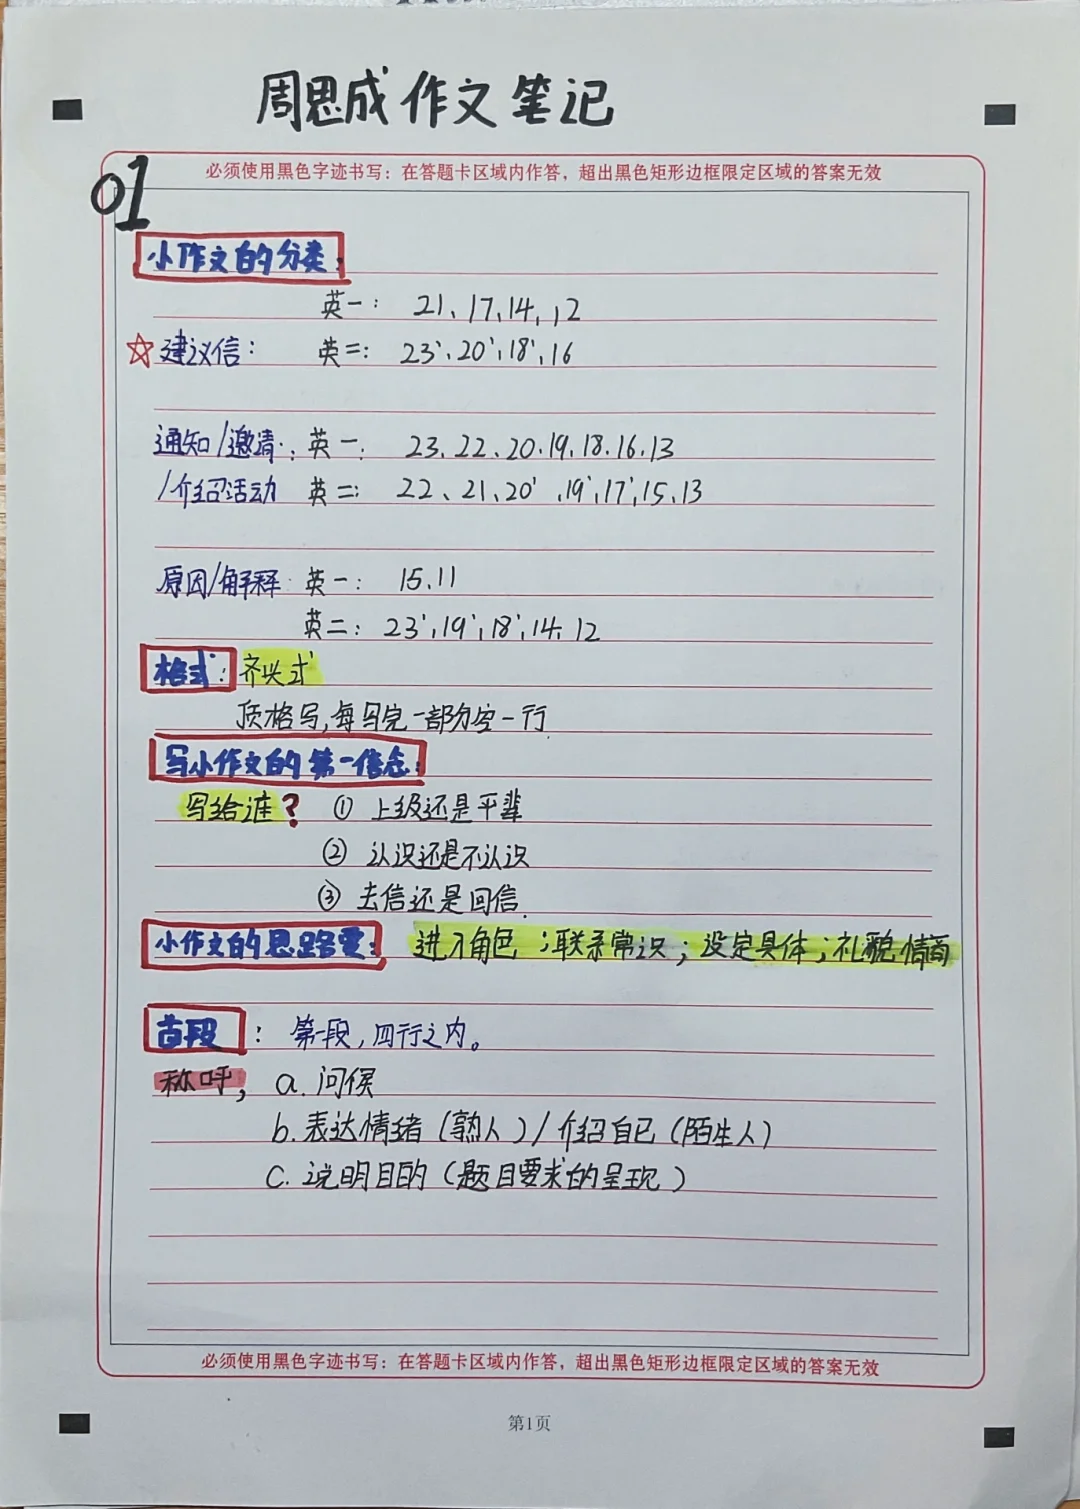 周思成作文笔记
必须使用黑色字迹书写：在答题卡区域内作答，超出黑色矩形边框限定区域的答案无效
01
小作文的分类：
英一： 21、17、14、12
☆建议信： 英二： 23'、20'、18'、16
通知/邀请： 英一： 23、22、20、19、18、16、13
/介绍活动 英二： 22、21、20'、19'、17'、15、13
原因/解释 英一： 15、11
英二： 23'、19'、18'、14、12
格式：齐头式
顶格写，每写完一部分空一行
写小作文的第一信念：
写给谁？ ① 上级还是平辈
② 认识还是不认识
③ 去信还是回信
小作文的思路要： 进入角色；联系常识；设定具体；礼貌情商
首段： 第一段，四行之内。
称呼， a. 问候
b. 表达情绪（熟人）/ 介绍自己（陌生人）
C. 说明目的（题目要求的呈现）
必须使用黑色字迹书写：在答题卡区域内作答，超出黑色矩形边框限定区域的答案无效
第1页